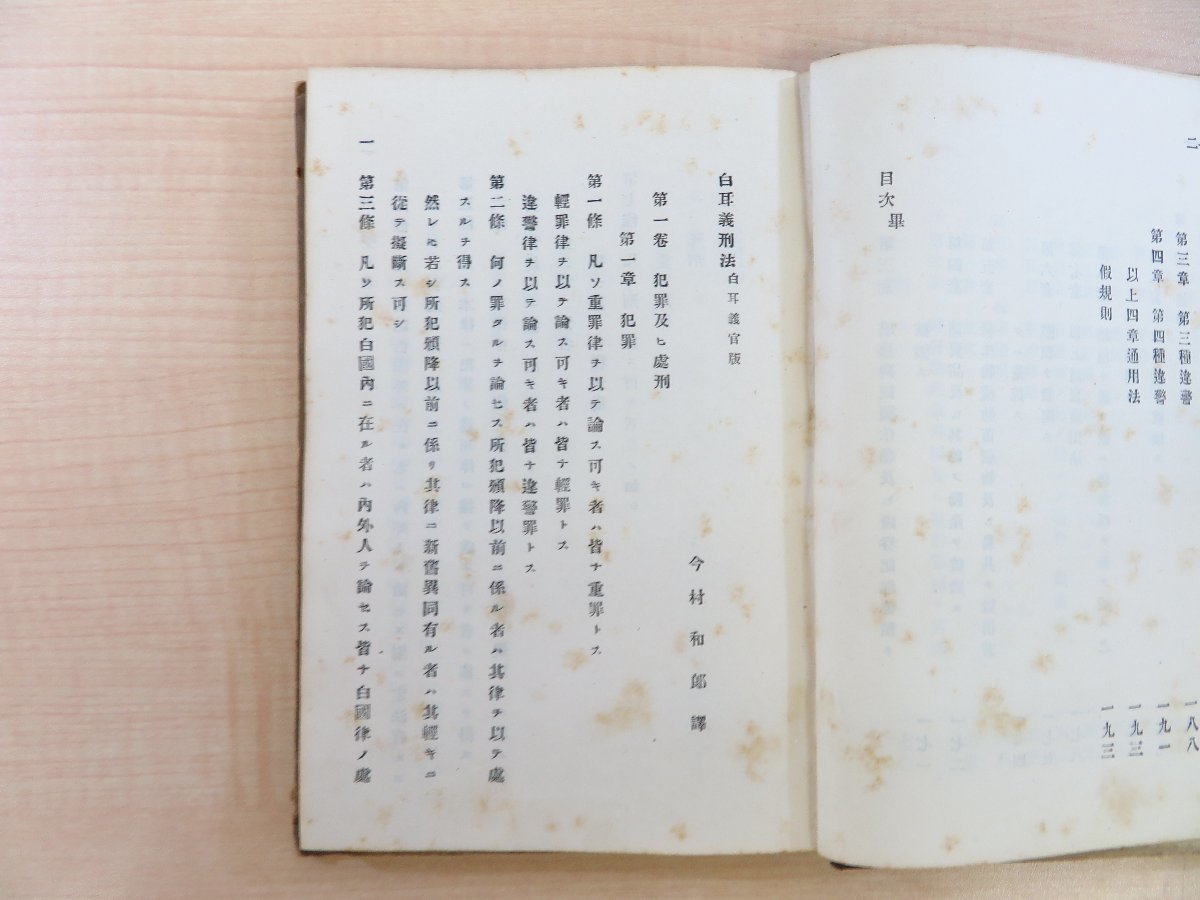 二
第三章 第三種違警 一八八
第四章 第四種違警 一九一
以上四章通用法 一九二
假規則 一九三
目次畢
白耳義刑法 白耳義官版
今村和郎譯
第一卷 犯罪及ヒ處刑
第一章 犯罪
第一條 凡ソ重罪律ヲ以テ論ス可キ者ハ皆ナ重罪トス
輕罪律ヲ以テ論ス可キ者ハ皆ナ輕罪トス
違警律ヲ以テ論ス可キ者ハ皆ナ違警罪トス
第二條 何ノ罪タルヲ論セス所犯頒降以前ニ係ル者ハ其律ヲ以テ處
スルヲ得ス
然レ𪜈若シ所犯頒降以前ニ係リ其律ニ新舊異同有ル者ハ其輕キニ
從テ擬斷ス可シ
第三條 凡ソ所犯白國內ニ在ル者ハ內外人ヲ論セス皆ナ白國律ノ處
一